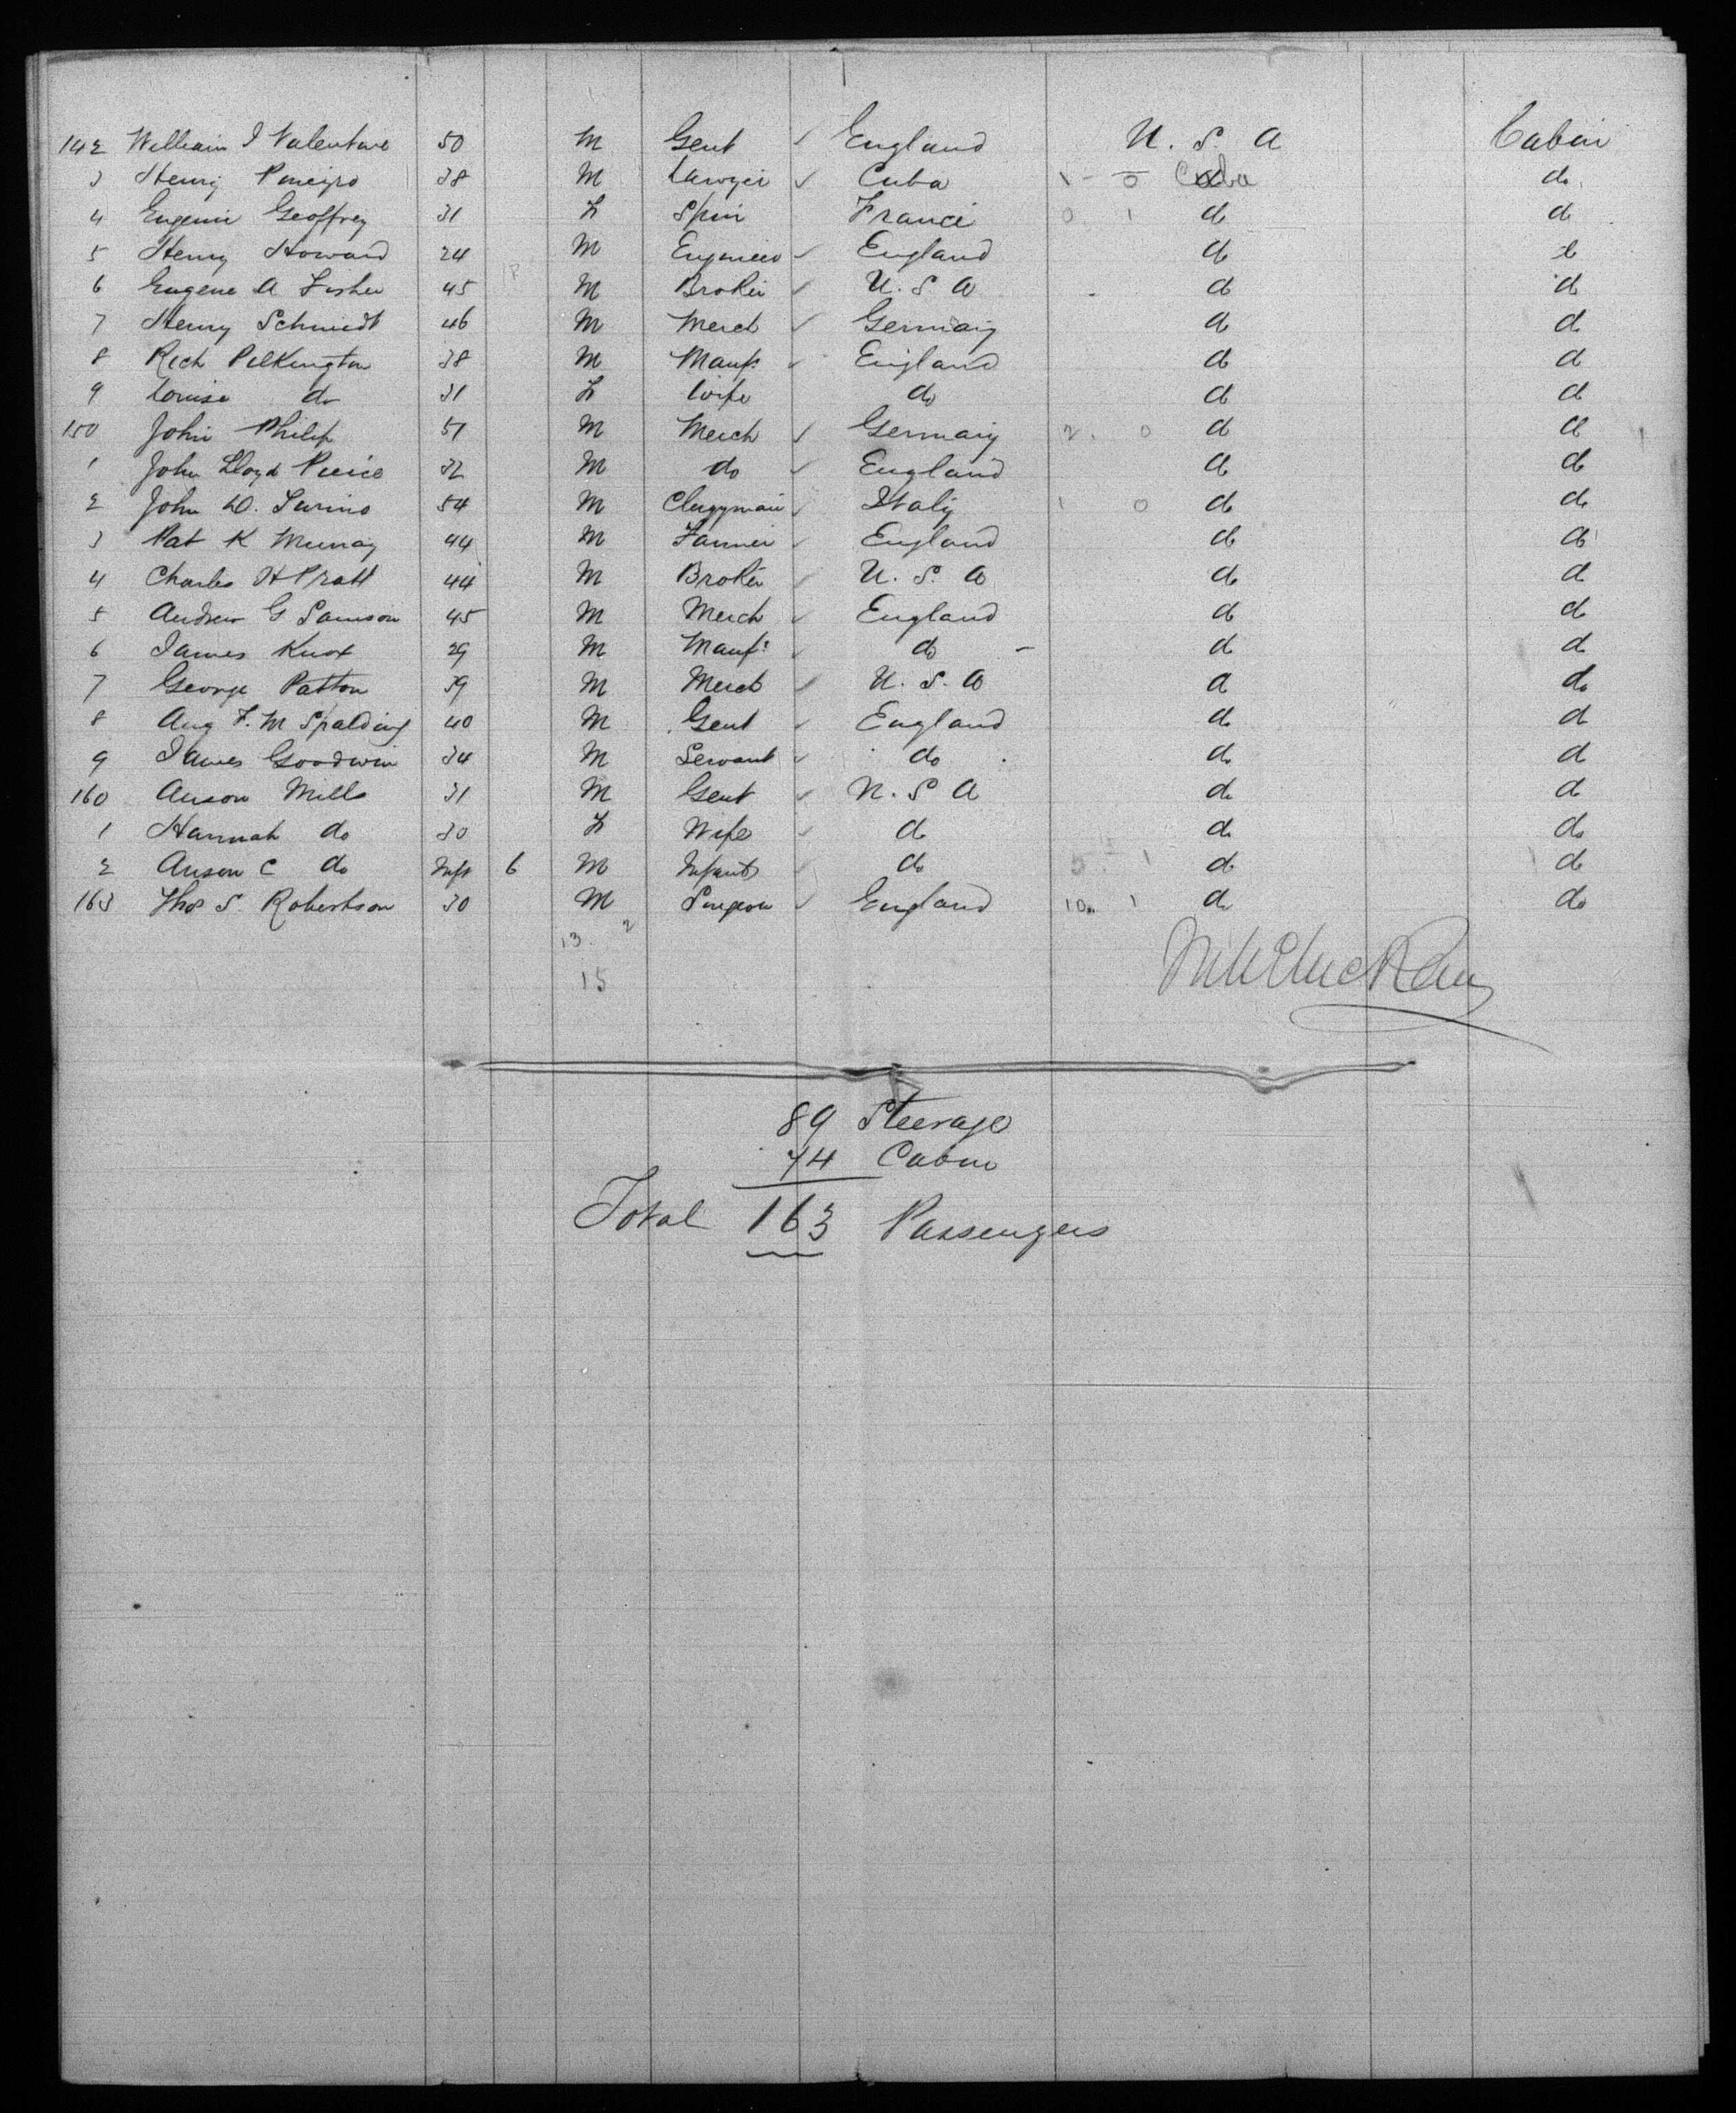 142 William I Valentine 50 M Gent ✓ England U. S. A Cabin
3 Henry Pineyro 38 M Lawyer ✓ Cuba 1 - 0 Cuba do
4 Eugenie Geoffrey 31 F Spin France 0 1 do do
5 Henry Howard 24 M Engineer ✓ England do do
6 Eugene A Fisher 45 M Broker ✓ U. S. A do do
7 Henry Schmidt 46 M Merch ✓ Germany do do
8 Rich Pilkington 38 M Manf: ✓ England do do
9 Louise do 31 F Wife do do do
150 John Philip 51 M Merch ✓ Germany 2. 0 do do
1 John Lloyd Peirce 32 M do ✓ England do do
2 John D. 54 M Clergyman ✓ Italy 1 0 do do
3 Pat K Murray 44 M Farmer ✓ England do do
4 Charles H Pratt 44 M Broker ✓ U. S. A do do
5 Andrew G Samson 45 M Merch ✓ England do do
6 James Knox 29 M Manf: ✓ do - do do
7 George Patton 39 M Merch ✓ U. S. A do do
8 Aug F. M Spalding 40 M Gent ✓ England do do
9 James Goodwin 34 M Servant ✓ do do do
160 Anson Mills 31 M Gent ✓ U. S A do do
1 Hannah do 30 F Wife ✓ do do do
2 Anson C do Inft 6 M Infant ✓ do 5 1 do do
163 Thos S. Robertson 30 M Surgeon ✓ England 10 1 do do
13. 2
15
89 Steerage
74 Cabin
Total 163 Passengers